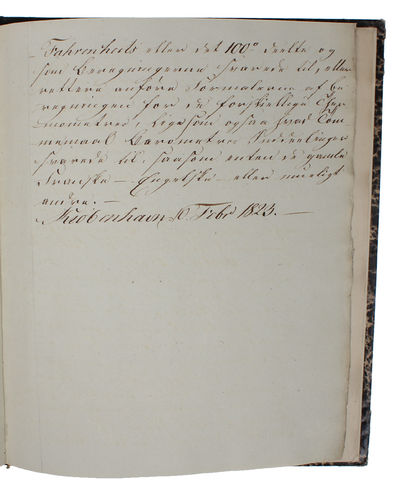 Fahrenheits eller det 100° deelte og
som Beregningerne svarede til, eller
rettere anföre Formalerne af be
regningen for de forskiellige Ther
mometres, ligesom ogsaa hvad Tom
memaal Barometres Inddelinger
svarede til saasom enten de gamle
Franske – Engelske – eller mueligt
andre. –
Kiøbenhavn 10 Febr 1823. –